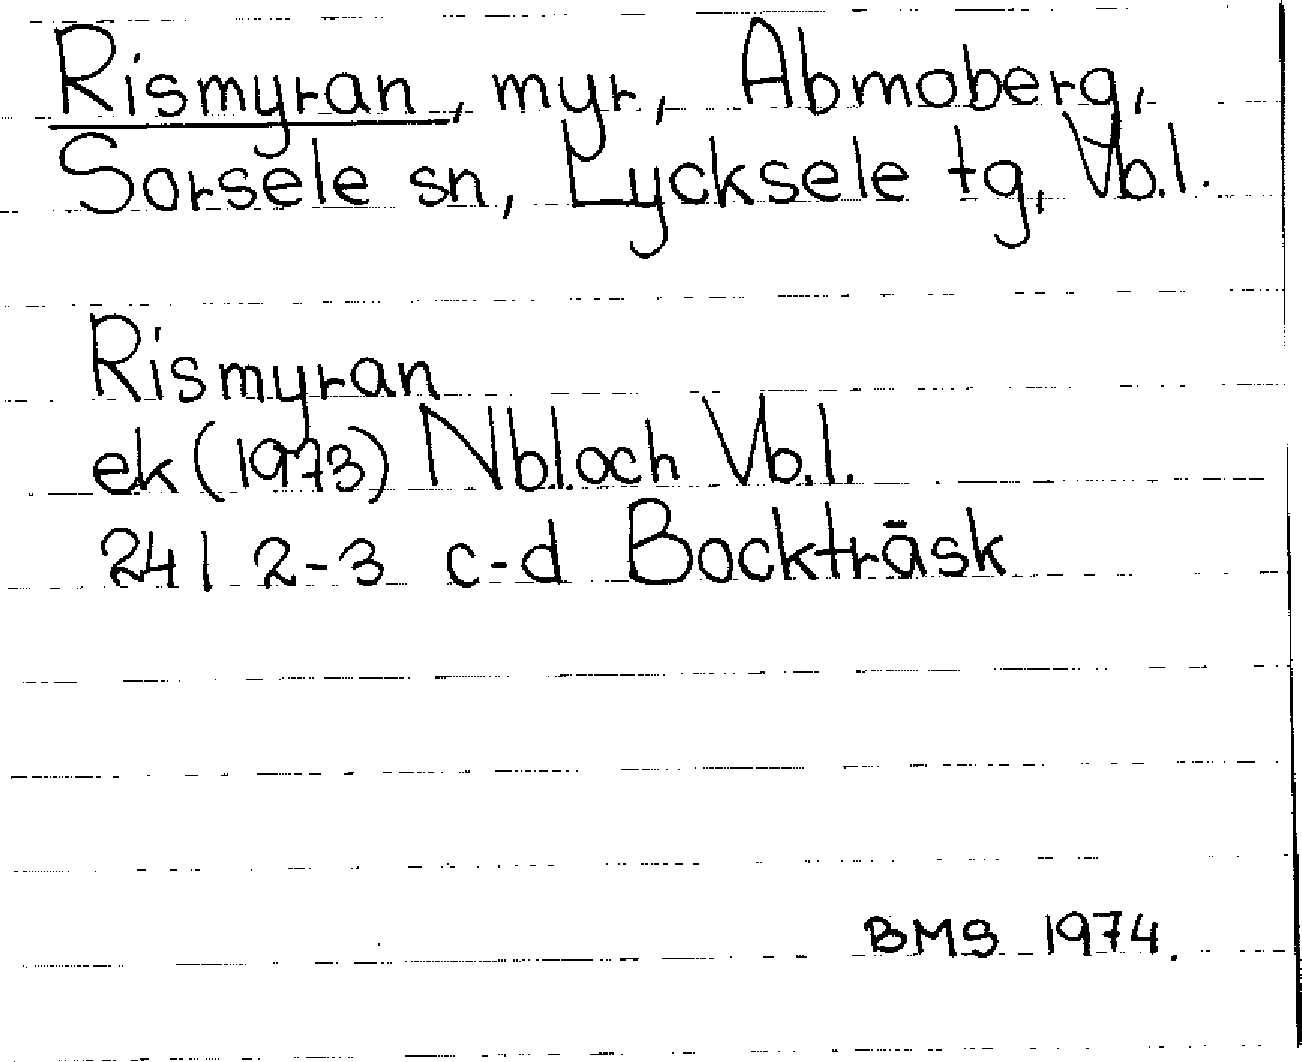 Rismyran, myr, Abmoberg,
Sorsele sn, Lycksele tg, Vb.l.
Rismyran
ek (1973) Nbl.och Vb.l.
24I 2-3 c-d Bockträsk
BMS 1974.